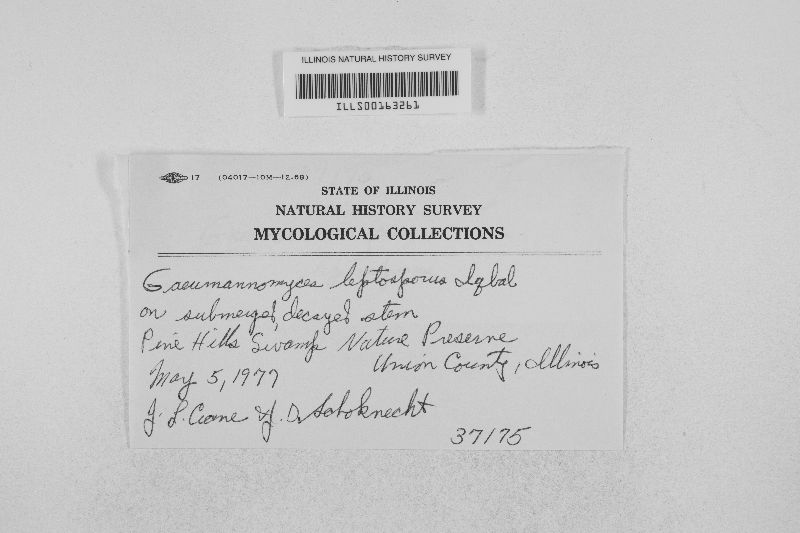 ILLINOIS NATURAL HISTORY SURVEY
ILLS00163261
17 (04017—10M—12-68)
STATE OF ILLINOIS
NATURAL HISTORY SURVEY
MYCOLOGICAL COLLECTIONS
Gaeumannomyces leptosporus Iqbal
on submerged, decayed stem
Pine Hills Swamp Nature Preserve
Union County, Illinois
May 5, 1977
J. L. Crane & J. D. Schoknecht
37175